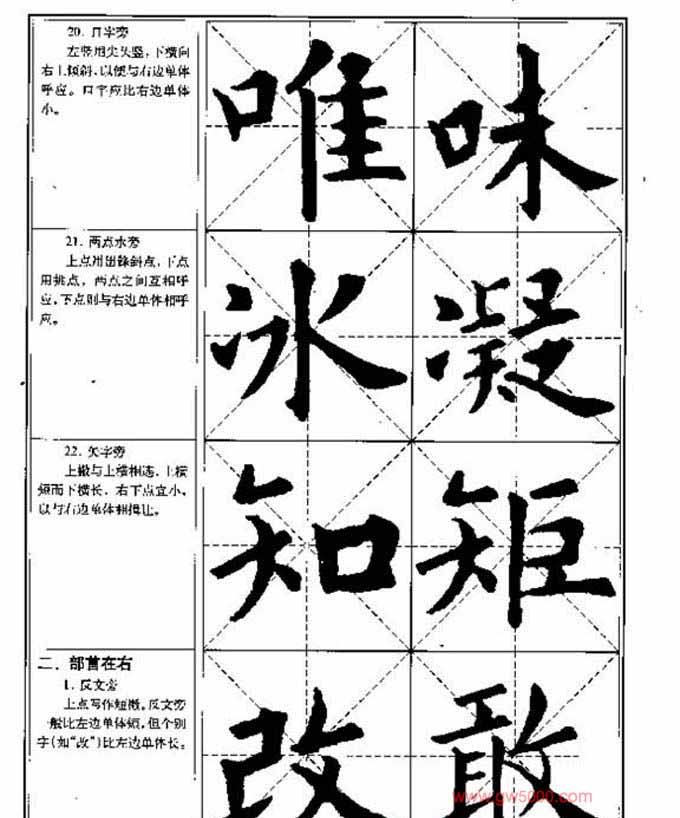 20. 口字旁
左竖用尖头竖，下横向
右上倾斜，以便与右边单体
呼应。口字应比右边单体
小。
唯 味
21. 两点水旁
上点用出锋斜点，下点
用挑点，两点之间互相呼
应，下点则与右边单体相呼
应。
冰 凝
22. 矢字旁
上撇与上横相连，上横
短而下横长，右下点宜小，
以与右边单体相揖让。
知 矩
二、部首在右
1. 反文旁
上点写作短撇。反文旁
一般比左边单体短，但个别
字（如“改”）比左边单体长。
改 敢
www.gw5000.com